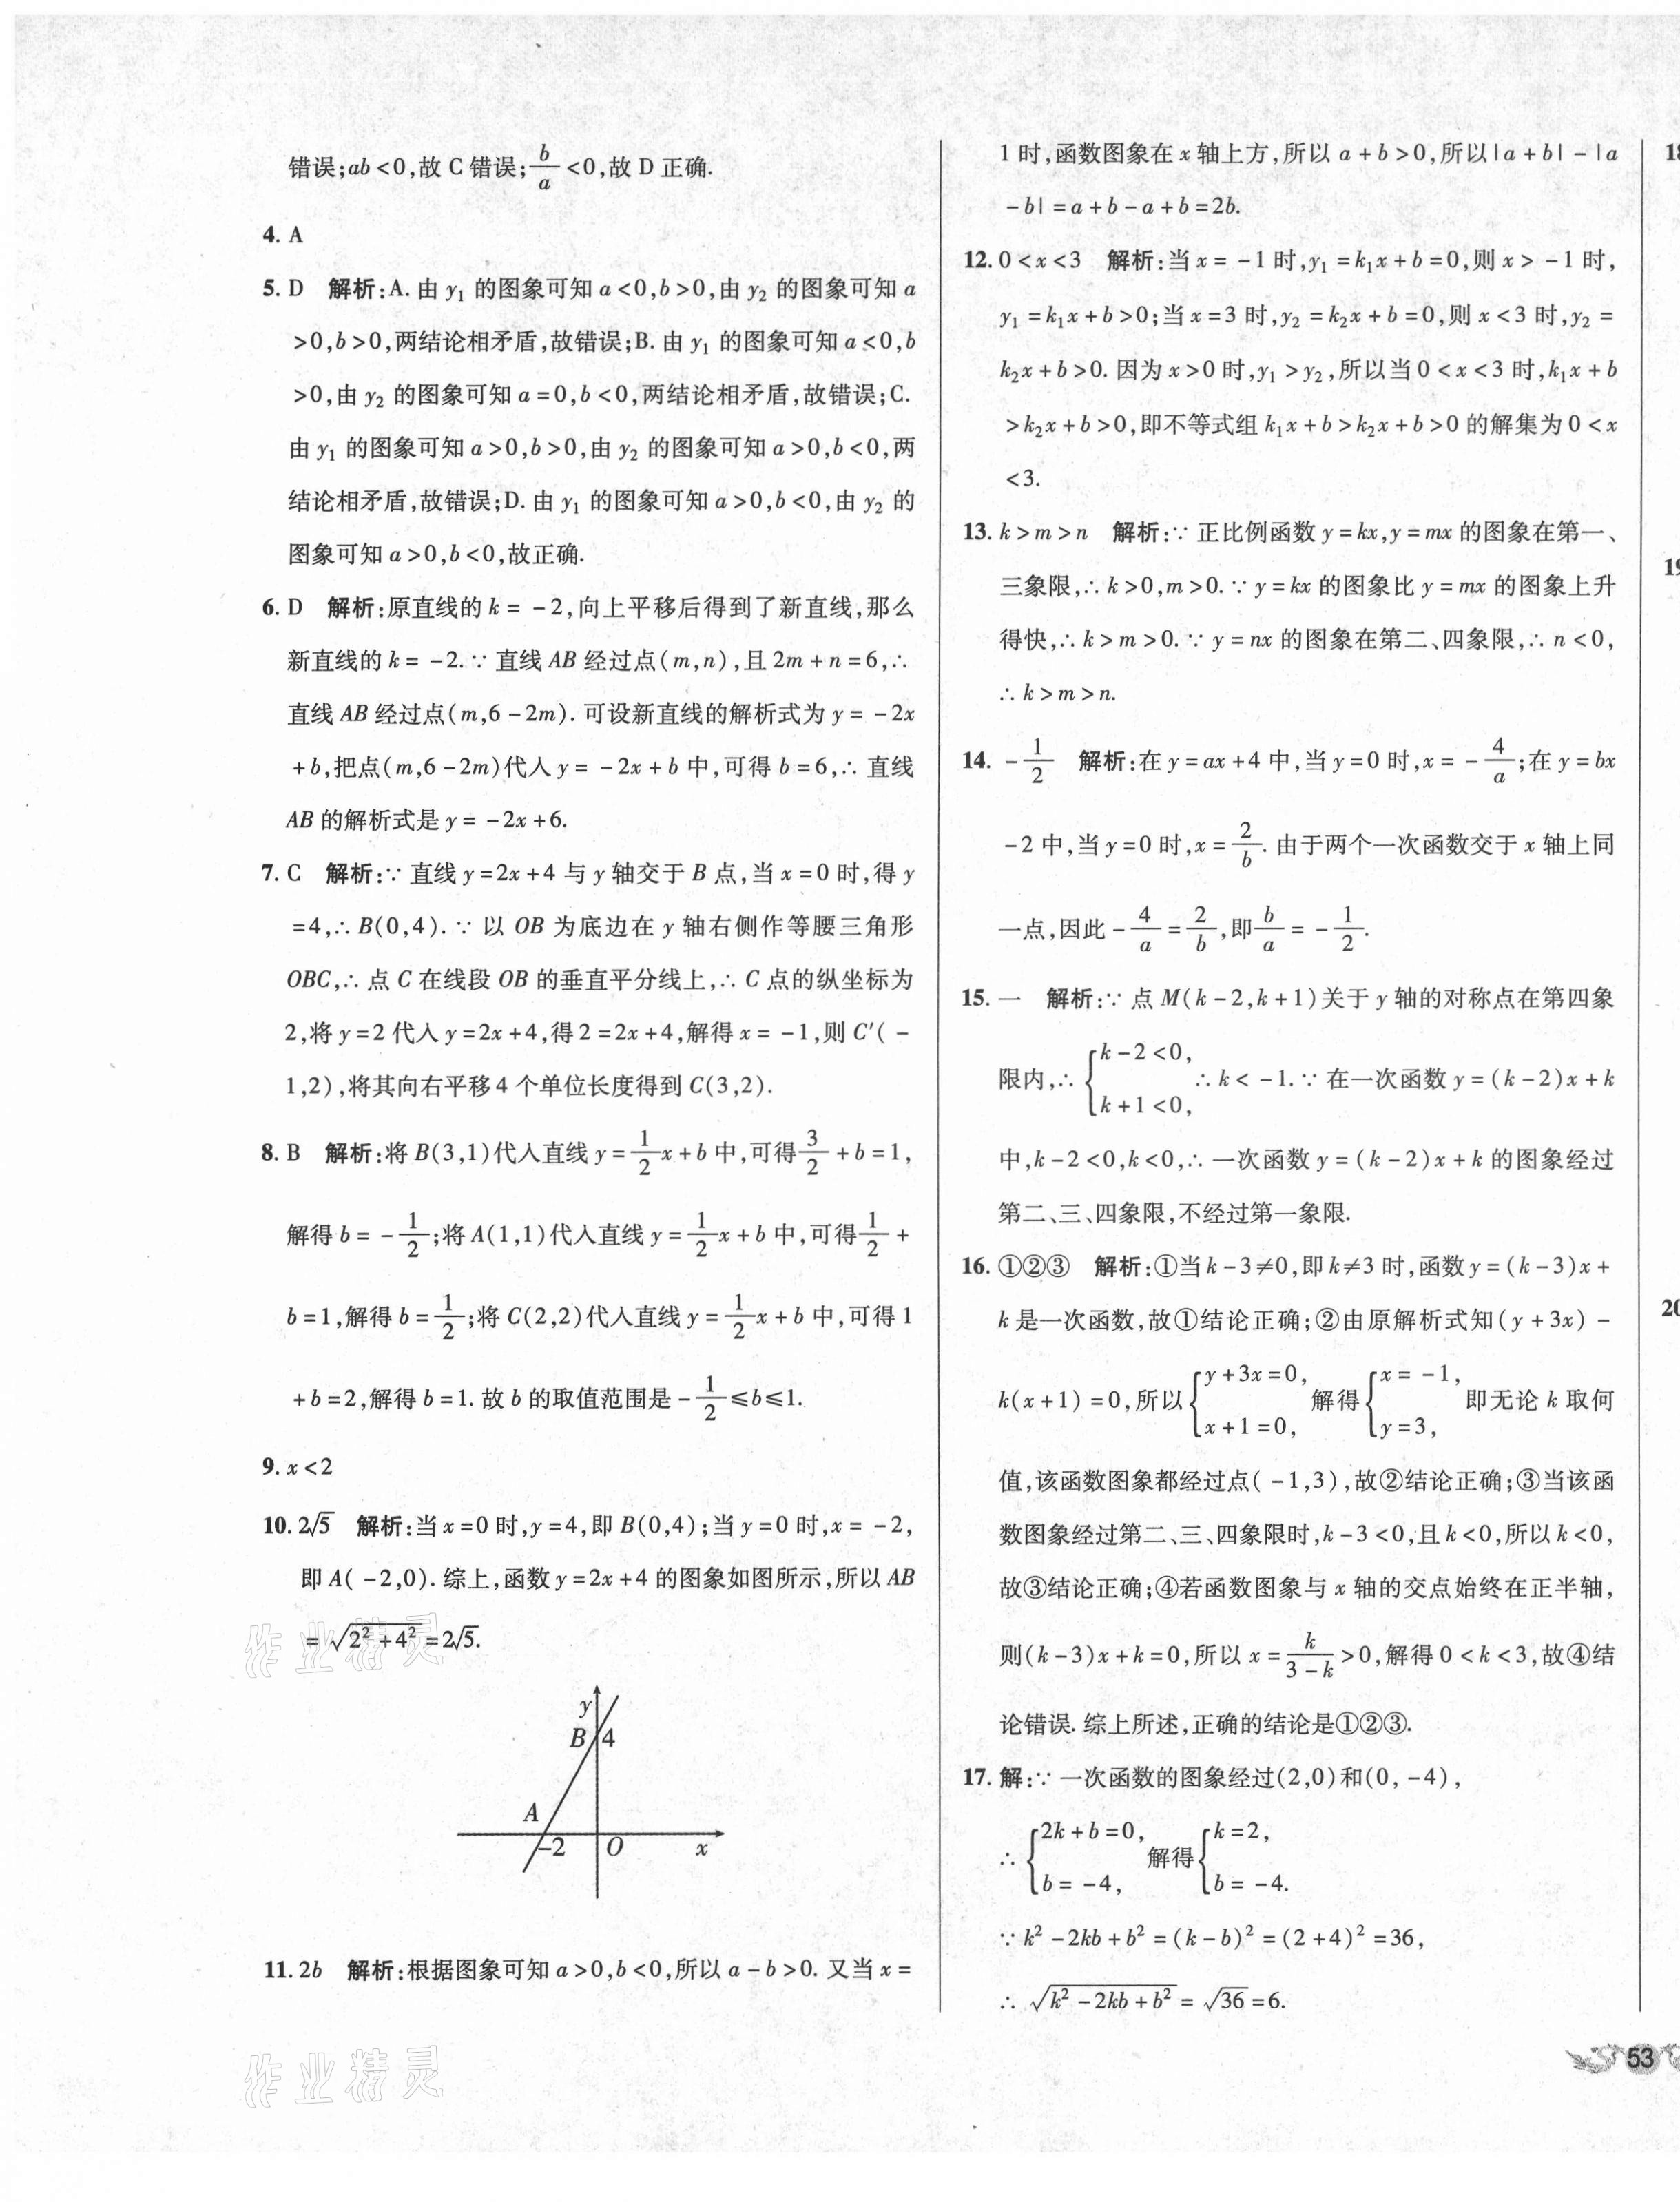 错误;ab<0,故 C 错误;b/a<0,故 D 正确.
4. A
5. D 解析:A. 由 y₁ 的图象可知 a<0,b>0,由 y₂ 的图象可知 a
>0,b>0,两结论相矛盾,故错误;B. 由 y₁ 的图象可知 a<0,b
>0,由 y₂ 的图象可知 a=0,b<0,两结论相矛盾,故错误;C.
由 y₁ 的图象可知 a>0,b>0,由 y₂ 的图象可知 a>0,b<0,两
结论相矛盾,故错误;D. 由 y₁ 的图象可知 a>0,b<0,由 y₂ 的
图象可知 a>0,b<0,故正确.
6. D 解析:原直线的 k=-2,向上平移后得到了新直线,那么
新直线的 k=-2. ∵ 直线 AB 经过点(m,n),且 2m+n=6,∴
直线 AB 经过点(m,6-2m). 可设新直线的解析式为 y=-2x
+b,把点(m,6-2m)代入 y=-2x+b 中,可得 b=6,∴ 直线
AB 的解析式是 y=-2x+6.
7. C 解析:∵ 直线 y=2x+4 与 y 轴交于 B 点,当 x=0 时,得 y
=4,∴ B(0,4). ∵ 以 OB 为底边在 y 轴右侧作等腰三角形
OBC,∴ 点 C 在线段 OB 的垂直平分线上,∴ C 点的纵坐标为
2,将 y=2 代入 y=2x+4,得 2=2x+4,解得 x=-1,则 C′(-
1,2),将其向右平移 4 个单位长度得到 C(3,2).
8. B 解析:将 B(3,1)代入直线 y=1/2x+b 中,可得3/2+b=1,
解得 b=-1/2;将 A(1,1)代入直线 y=1/2x+b 中,可得1/2+
b=1,解得 b=1/2;将 C(2,2)代入直线 y=1/2x+b 中,可得 1
+b=2,解得 b=1. 故 b 的取值范围是-1/2≤b≤1.
9. x<2
10. 2√5 解析:当 x=0 时,y=4,即 B(0,4);当 y=0 时,x=-2,
即 A(-2,0). 综上,函数 y=2x+4 的图象如图所示,所以 AB
=√(2²+4²)=2√5.
作业精灵
y
B 4
A
-2 O x
11. 2b 解析:根据图象可知 a>0,b<0,所以 a-b>0. 又当 x=
作业精灵
1 时,函数图象在 x 轴上方,所以 a+b>0,所以|a+b|-|a
-b|=a+b-a+b=2b.
12. 0<x<3 解析:当 x=-1 时,y₁=k₁x+b=0,则 x>-1 时,
y₁=k₁x+b>0;当 x=3 时,y₂=k₂x+b=0,则 x<3 时,y₂=
k₂x+b>0. 因为 x>0 时,y₁>y₂,所以当 0<x<3 时,k₁x+b
>k₂x+b>0,即不等式组 k₁x+b>k₂x+b>0 的解集为 0<x
<3.
13. k>m>n 解析:∵ 正比例函数 y=kx,y=mx 的图象在第一、
三象限,∴ k>0,m>0. ∵ y=kx 的图象比 y=mx 的图象上升
得快,∴ k>m>0. ∵ y=nx 的图象在第二、四象限,∴ n<0,
∴ k>m>n.
14. -1/2 解析:在 y=ax+4 中,当 y=0 时,x=-4/a;在 y=bx
-2 中,当 y=0 时,x=2/b. 由于两个一次函数交于 x 轴上同
一点,因此-4/a=2/b,即b/a=-1/2.
15. 一 解析:∵ 点 M(k-2,k+1)关于 y 轴的对称点在第四象
限内,∴ {k-2<0, k+1<0, ∴ k<-1. ∵ 在一次函数 y=(k-2)x+k
中,k-2<0,k<0,∴ 一次函数 y=(k-2)x+k 的图象经过
第二、三、四象限,不经过第一象限.
16. ①②③ 解析:①当 k-3≠0,即 k≠3 时,函数 y=(k-3)x+
k 是一次函数,故①结论正确;②由原解析式知(y+3x)-
k(x+1)=0,所以{y+3x=0, x+1=0, 解得{x=-1, y=3, 即无论 k 取何
值,该函数图象都经过点(-1,3),故②结论正确;③当该函
数图象经过第二、三、四象限时,k-3<0,且 k<0,所以 k<0,
故③结论正确;④若函数图象与 x 轴的交点始终在正半轴,
则(k-3)x+k=0,所以 x=k/(3-k)>0,解得 0<k<3,故④结
论错误. 综上所述,正确的结论是①②③.
17. 解:∵ 一次函数的图象经过(2,0)和(0,-4),
∴ {2k+b=0, b=-4, 解得{k=2, b=-4.
∵ k²-2kb+b²=(k-b)²=(2+4)²=36,
∴ √(k²-2kb+b²)=√36=6.
18
19
20
53